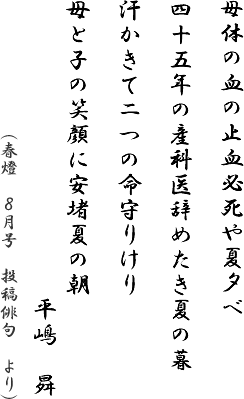 母体の血の止血必死や夏夕べ
四十五年の産科医辞めたき夏の暮
汗かきて二つの命守りけり
母と子の笑顔に安堵夏の朝
平嶋 昇
(春燈 8月号 投稿俳句 より)